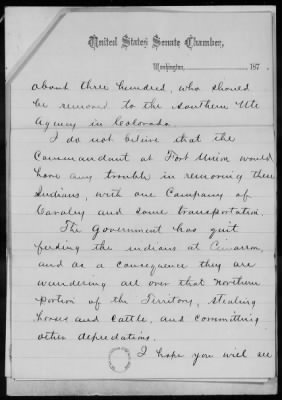 United States Senate Chamber,
Washington, 187
about three hundred, who should
be removed to the southern Ute
Agency in Colorado.
I do not believe that the
Commandant at Fort Union would
have any trouble in removing these
Indians, with one Company of
Cavalry and some transportation.
The Government has quit
feeding the indians at Cimarron,
and as a consequence they are
wandering all over that northern
portion of the Territory, stealing
horses and cattle, and committing
other depredations.
I hope you will see